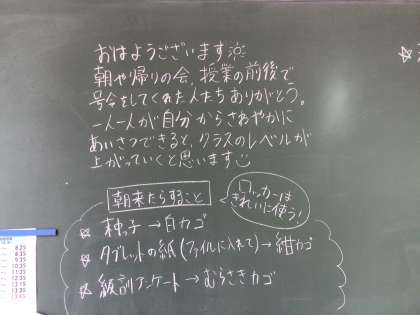 おはようございます
朝や帰りの会、授業の前後で
号令をしてくれた人たちありがとう。
一人一人が自分からさわやかに
あいさつできると、クラスのレベルが
上がっていくと思います
朝来たらすること
ロッカーは
きれいに使う!
☆ 梅子→白カゴ
☆ タブレットの紙(ファイルに入れて)→紺カゴ
☆ 級訓アンケート→むらさきカゴ
8:25
8:35